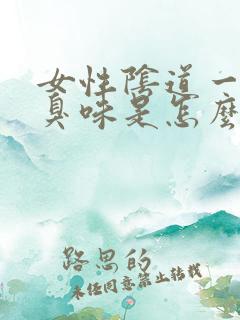 女性陰道一
臭味是怎麼
路思的
未经同意禁止转载